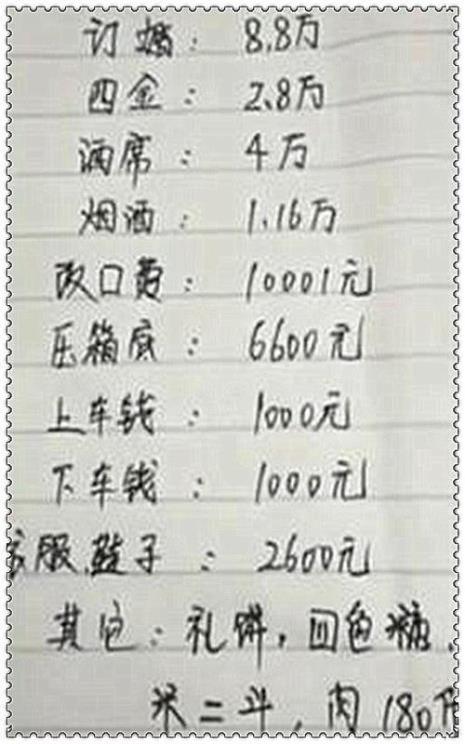 订婚：8.8万
四金：2.8万
酒席：4万
烟酒：1.16万
改口费：10001元
压箱底：6600元
上车钱：1000元
下车钱：1000元
衣服鞋子：2600元
其它：礼饼，四色糖，
米二斗，肉180斤